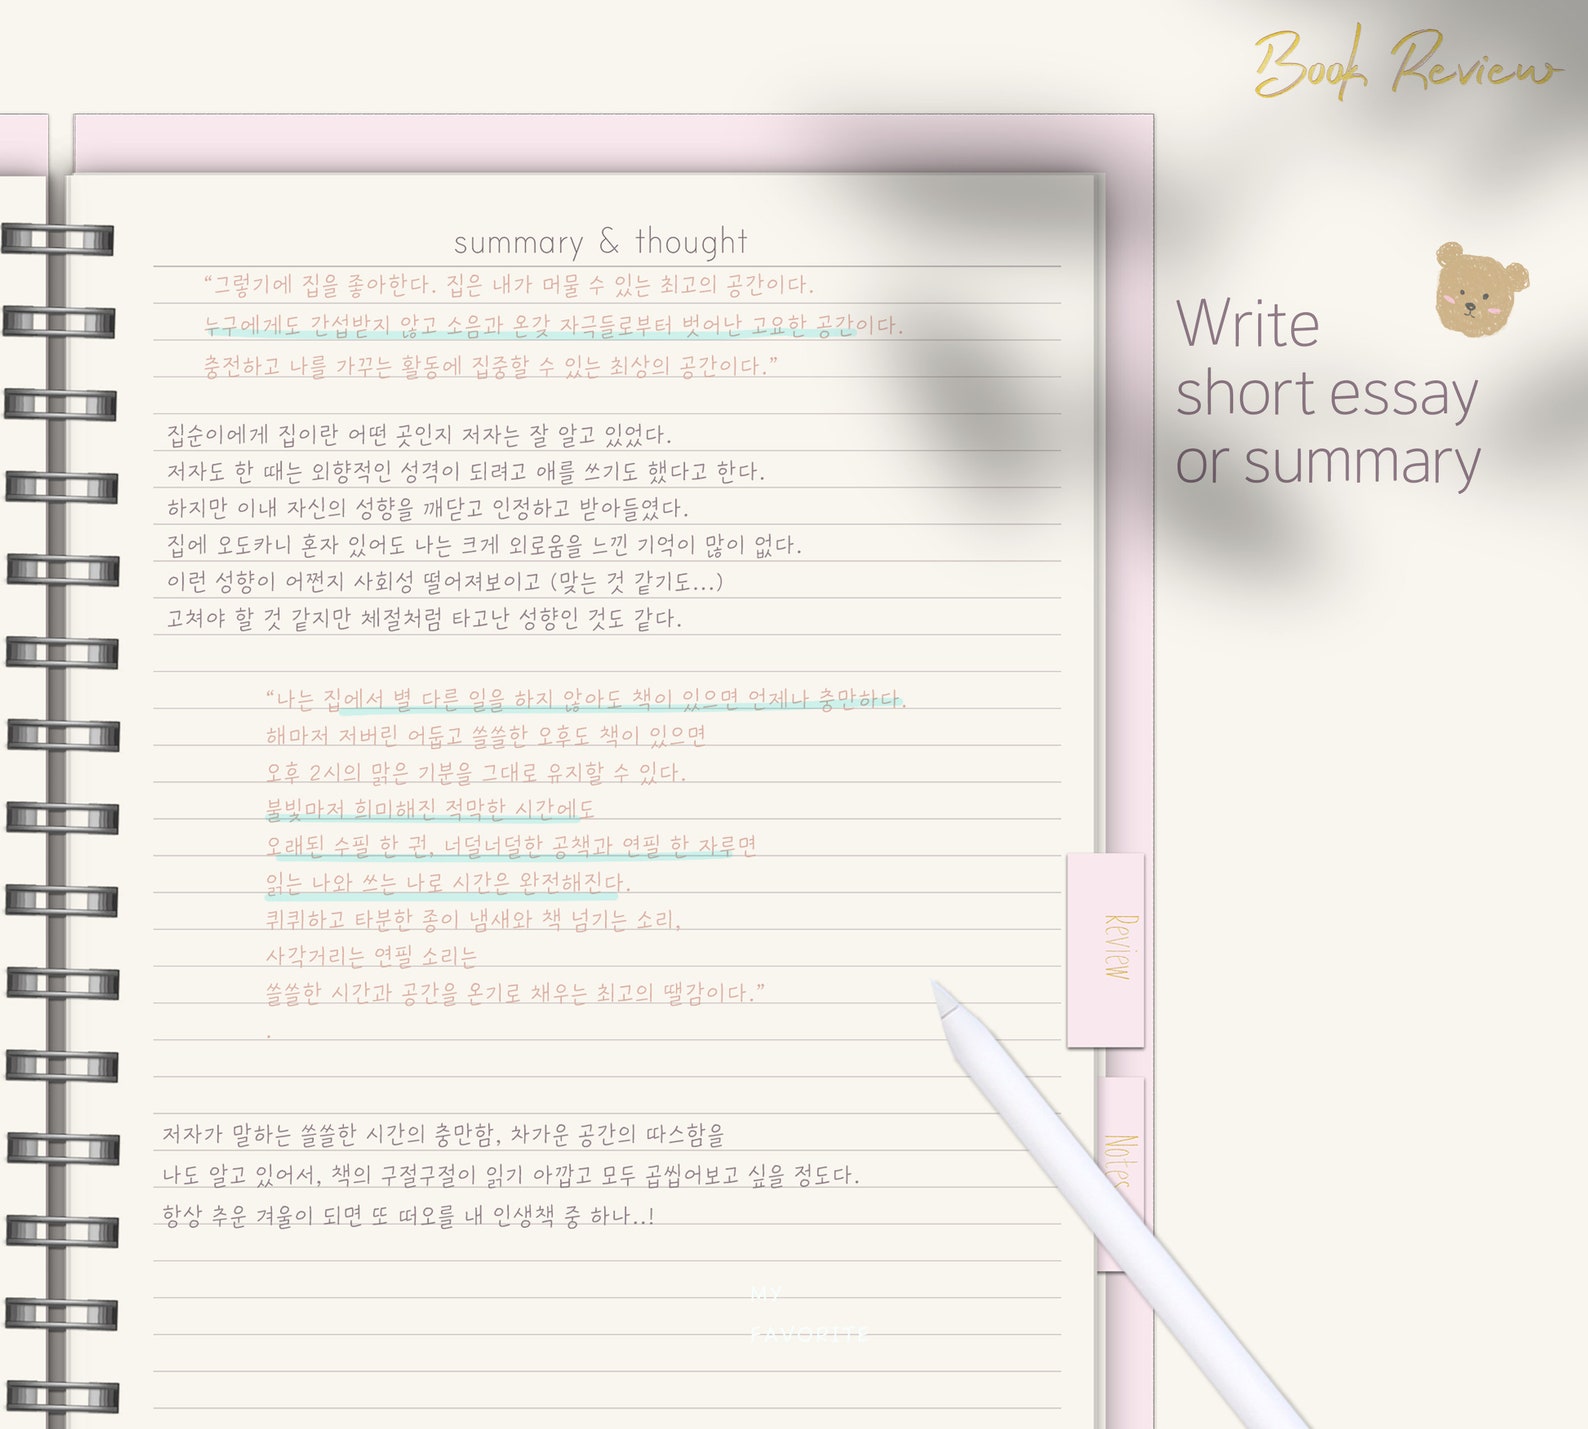 Book Review
summary & thought
“그렇기에 집을 좋아한다. 집은 내가 머물 수 있는 최고의 공간이다.
누구에게도 간섭받지 않고 소음과 온갖 자극들로부터 벗어난 고요한 공간이다.
충전하고 나를 가꾸는 활동에 집중할 수 있는 최상의 공간이다.”
집순이에게 집이란 어떤 곳인지 저자는 잘 알고 있었다.
저자도 한 때는 외향적인 성격이 되려고 애를 쓰기도 했다고 한다.
하지만 이내 자신의 성향을 깨닫고 인정하고 받아들였다.
집에 오도카니 혼자 있어도 나는 크게 외로움을 느낀 기억이 많이 없다.
이런 성향이 어쩐지 사회성 떨어져보이고 (맞는 것 같기도...)
고쳐야 할 것 같지만 체절처럼 타고난 성향인 것도 같다.
“나는 집에서 별 다른 일을 하지 않아도 책이 있으면 언제나 충만하다.
해마저 저버린 어둡고 쓸쓸한 오후도 책이 있으면
오후 2시의 맑은 기분을 그대로 유지할 수 있다.
불빛마저 희미해진 적막한 시간에도
오래된 수필 한 권, 너덜너덜한 공책과 연필 한 자루면
읽는 나와 쓰는 나로 시간은 완전해진다.
퀴퀴하고 타분한 종이 냄새와 책 넘기는 소리,
사각거리는 연필 소리는
쓸쓸한 시간과 공간을 온기로 채우는 최고의 땔감이다.”
.
저자가 말하는 쓸쓸한 시간의 충만함, 차가운 공간의 따스함을
나도 알고 있어서, 책의 구절구절이 읽기 아깝고 모두 곱씹어보고 싶을 정도다.
항상 추운 겨울이 되면 또 떠오를 내 인생책 중 하나..!
MY
FAVORITE
Write
short essay
or summary
Review
Notes